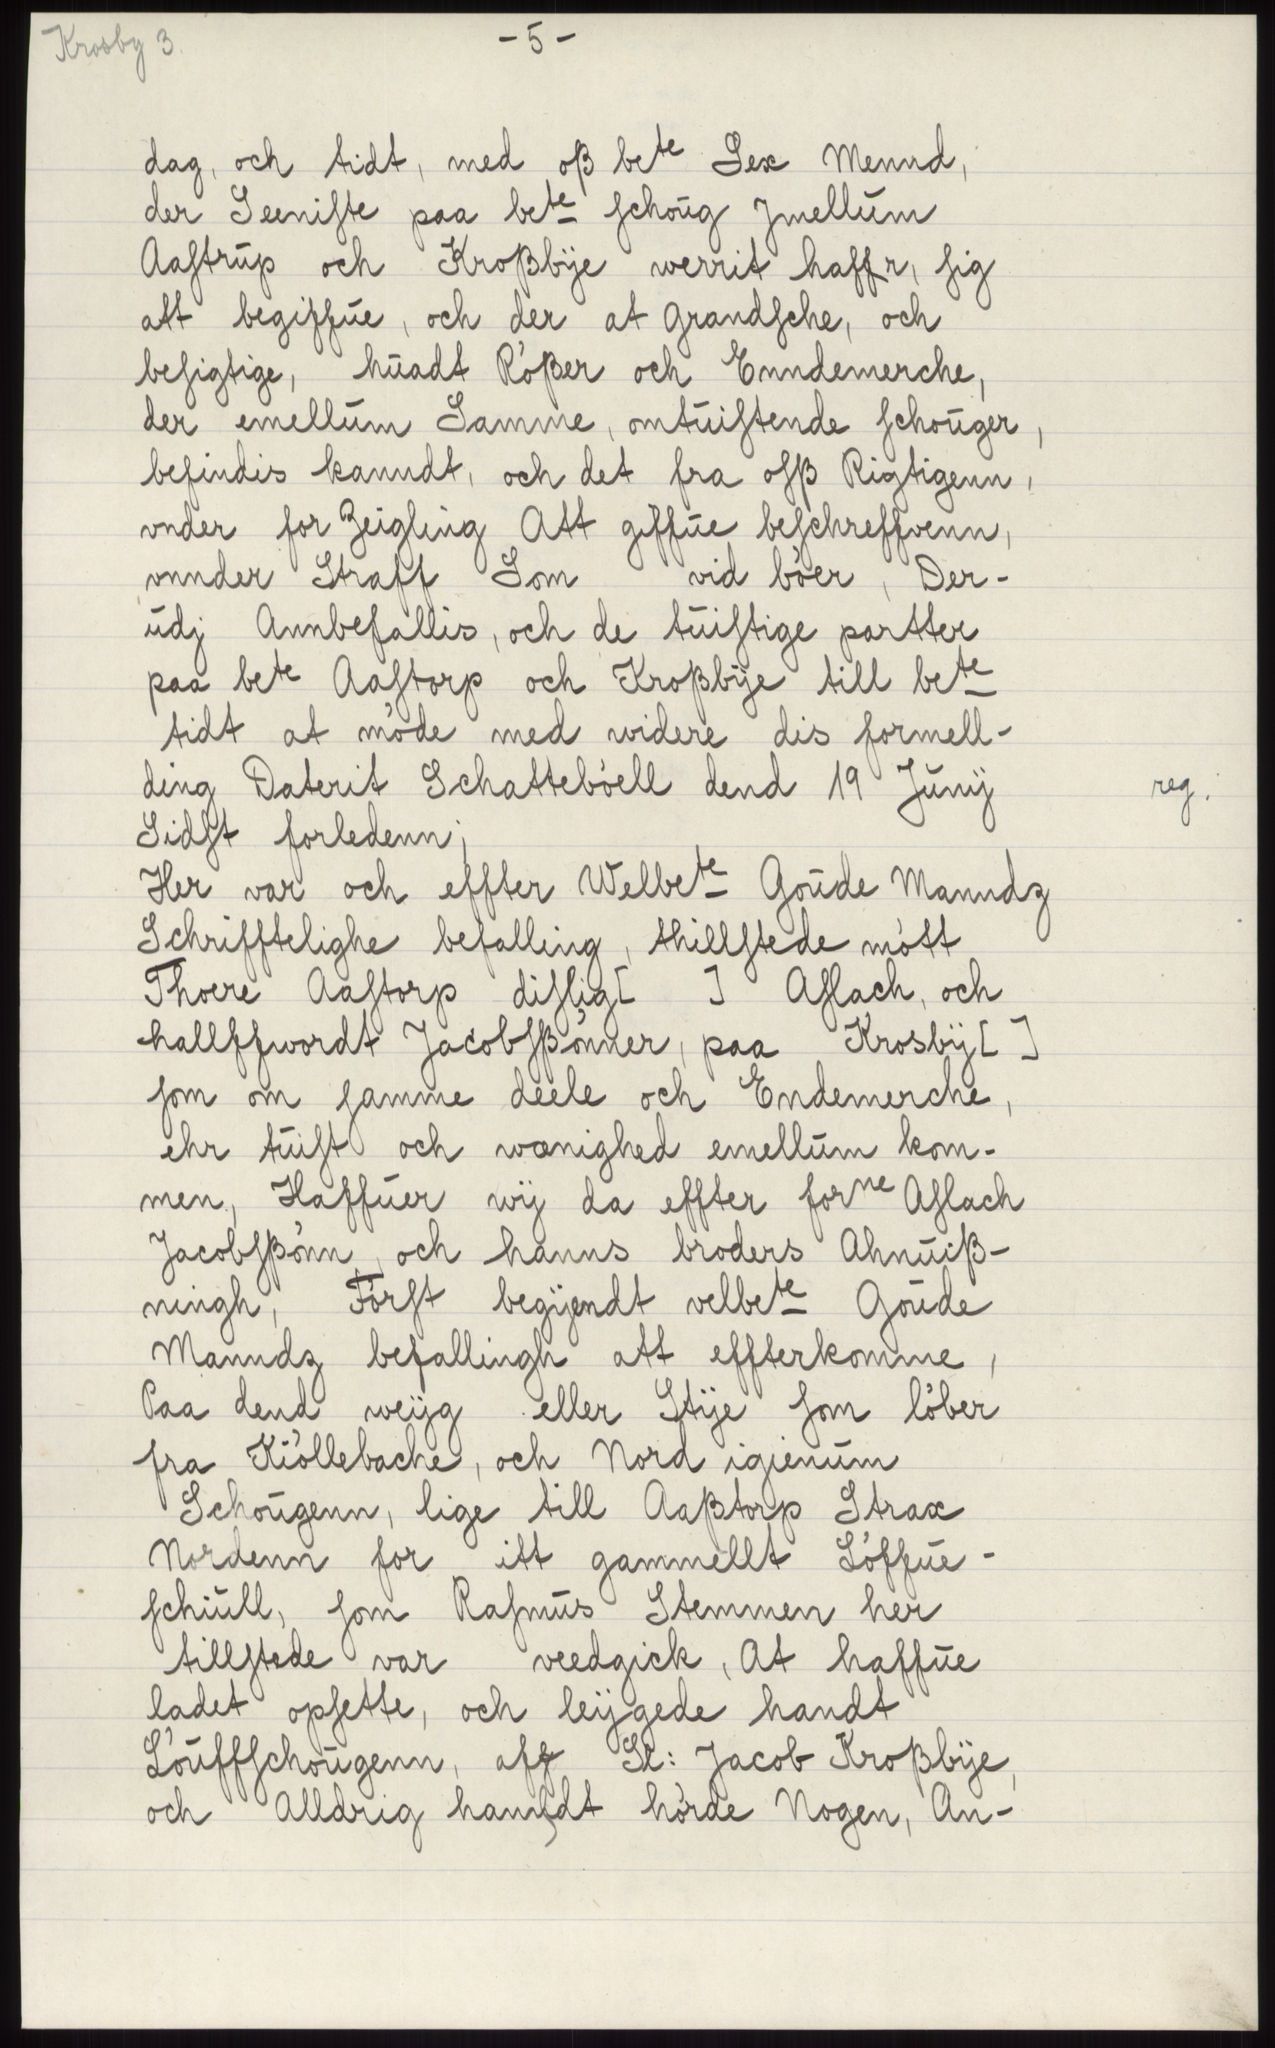 Krosby 3.
- 5 -
dag, och tidt, med oß be^te Sex Mennd,
der Seeniste paa be^te schoūg Jmellūm
Aastrūp och Kroßbÿe werrit haffr, sig
att begiffūe, och der at grandsche, och
besigtige, hūadt Rößer och Enndemerche,
der emellūm Samme, omtūistende schoūger,
befindis kanndt, och det fra osß Rigtigenn,
vnder for Zeigling Att giffūe beschreffvenn,
vnnder Straff Som vid böer, Der-
ūdj Annbefallis, och de tūistige partter
paa be^te Aastorp och Kroßbÿe till be^te
tidt at möde med widere dis formell-
ding Daterit Schatteböell dend 19 Jūnÿ
reg.
Sidst forledenn;
Her var och effter Welbe^te Goūde Manndz
Schrifftelighe befalling, thillstede mött
Thoere Aastorp dislig[ ] Aslach, och
hallffwordt Jacobsßönner, paa Krosbÿ[ ]
som om samme deele och Endemerche,
ehr tūist och woenighed emellūm kom-
men, Haffūer wÿ da effter for^ne Aslach
Jacobsßönn, och hanns broders Ahnūiß-
ningh, Först begÿendt velbe^te Goūde
Manndz befallingh att effterkomme,
Paa dend weÿg eller Stÿe som löber
fra Kiöllebache, och Nord igienūm
Schoūgenn, lige till Aaßtorp Strax
Nordenn for itt gammellt Löffūe-
schiūll, som Rasmūs Stemmen her
tillstede var veedgick, At haffūe
ladet opsette, och leÿgede handt
Löūffschoūgenn, aff Sl: Jacob Kroßbÿe,
och Alldrig hanndt hörde Nogen, An-